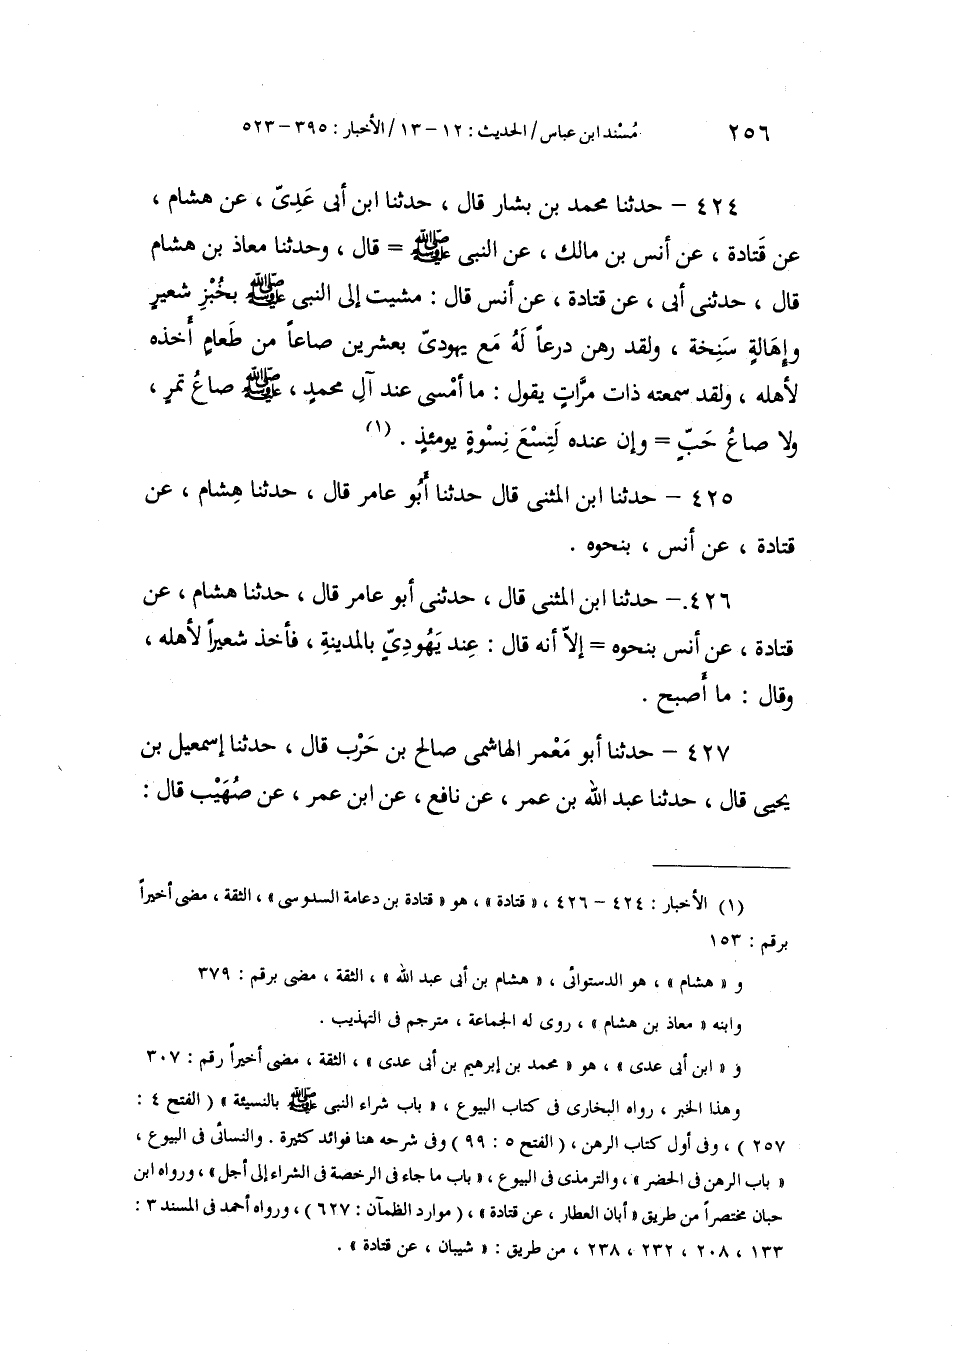 ٢٥٦ مُسْند ابن عباس / الحديث : ١٢ – ١٣ / الأخبار : ٣٩٥ – ٥٢٣
٤٢٤ – حدثنا محمد بن بشار قال ، حدثنا ابن أبى عَدِىّ ، عن هشام ،
عن قَتادة ، عن أنس بن مالك ، عن النبى ﷺ = قال ، وحدثنا معاذ بن هشام
قال ، حدثنى أبى ، عن قتادة ، عن أنس قال : مشيت إلى النبى ﷺ بخُبْزِ شعيرٍ
وإهَالةٍ سَنِخة ، ولقد رهن درعاً لَهُ مَع يهودىّ بعشرين صاعاً من طَعامٍ أخذه
لأهله ، ولقد سمعته ذات مرَّاتٍ يقول : ما أمْسى عند آلِ محمدٍ ، ﷺ صاعُ تمرٍ ،
ولا صاعُ حَبّ = وإن عنده لَتِسْعَ نِسْوةٍ يومئذٍ . (١)
٤٢٥ – حدثنا ابن المثنى قال حدثنا أبُو عامر قال ، حدثنا هِشام ، عن
قتادة ، عن أنس ، بنحوه .
٤٢٦ – حدثنا ابن المثنى قال ، حدثنى أبو عامر قال ، حدثنا هشام ، عن
قتادة ، عن أنس بنحوه = إلاّ أنه قال : عِند يَهُودِيّ بالمدينةِ ، فأخذ شعيراً لأهله ،
وقال : ما أَصبح .
٤٢٧ – حدثنا أبو مَعْمر الهاشمى صالح بن حَرْب قال ، حدثنا إسمعيل بن
يحيى قال ، حدثنا عبد الله بن عمر ، عن نافع ، عن ابن عمر ، عن صُهَيْب قال :
(١) الأخبار : ٤٢٤ – ٤٢٦ ، « قتادة » ، هو « قتادة بن دعامة السدوسى » ، الثقة ، مضى أخيراً
برقم : ١٥٣
و « هشام » ، هو الدستوائى ، « هشام بن أبى عبد الله » ، الثقة ، مضى برقم : ٣٧٩
وابنه « معاذ بن هشام » ، روى له الجماعة ، مترجم فى التهذيب .
و « ابن أبى عدى » ، هو « محمد بن إبرهيم بن أبى عدى » ، الثقة ، مضى أخيراً رقم : ٣٠٧
وهذا الخبر ، رواه البخارى فى كتاب البيوع ، « باب شراء النبى ﷺ بالنسيئة » ( الفتح ٤ :
٢٥٧ ) ، وفى أول كتاب الرهن ، ( الفتح ٥ : ٩٩ ) وفى شرحه هنا فوائد كثيرة . والنسائى فى البيوع ،
« باب الرهن فى الحضر » ، والترمذى فى البيوع ، « باب ما جاء فى الرخصة فى الشراء إلى أجل » ، ورواه ابن
حبان مختصراً من طريق « أبان العطار ، عن قتادة » ، ( موارد الظمآن : ٦٢٧ ) ، ورواه أحمد فى المسند ٣ :
١٣٣ ، ٢٠٨ ، ٢٣٢ ، ٢٣٨ ، من طريق : « شيبان ، عن قتادة » .